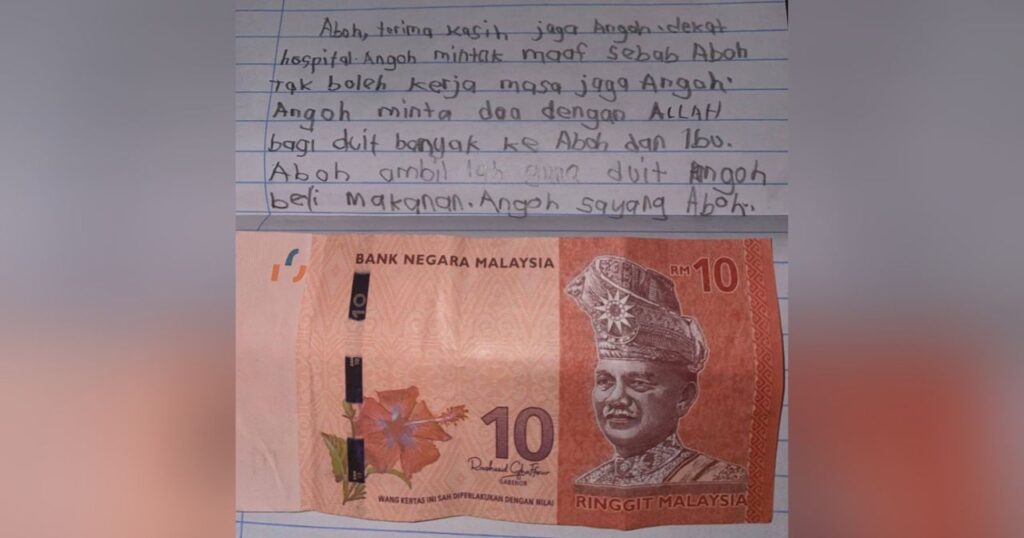 Aboh, terima kasih jaga Angoh dekat
hospital. Angoh mintak maaf sebab Aboh
Tak boleh kerja masa jaga Angoh.
Angoh minta doa dengan ALLAH
bagi duit banyak ke Aboh dan Ibu.
Aboh ambil lah duit Angoh
beli makanan. Angoh sayang Aboh.
BANK NEGARA MALAYSIA
RM10
10
10
GABENOR
WANG KERTAS INI SAH DIPERLAKUKAN DENGAN NILAI
RINGGIT MALAYSIA